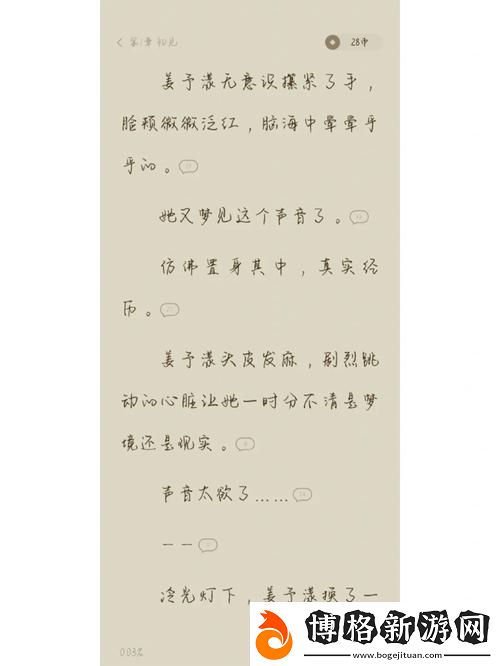 第1章 初见
28币
姜予漾无意识攥紧了手，
脸颊微微泛红，脑海中晕晕乎
乎的。
她又梦见这个声音了。
仿佛置身其中，真实经
历。
姜予漾头皮发麻，剧烈跳
动的心脏让她一时分不清是梦
境还是现实。
声音太欲了……
一一
冷光灯下，姜予漾换了一
0.03%
博格新游网
www.bogejituan.com